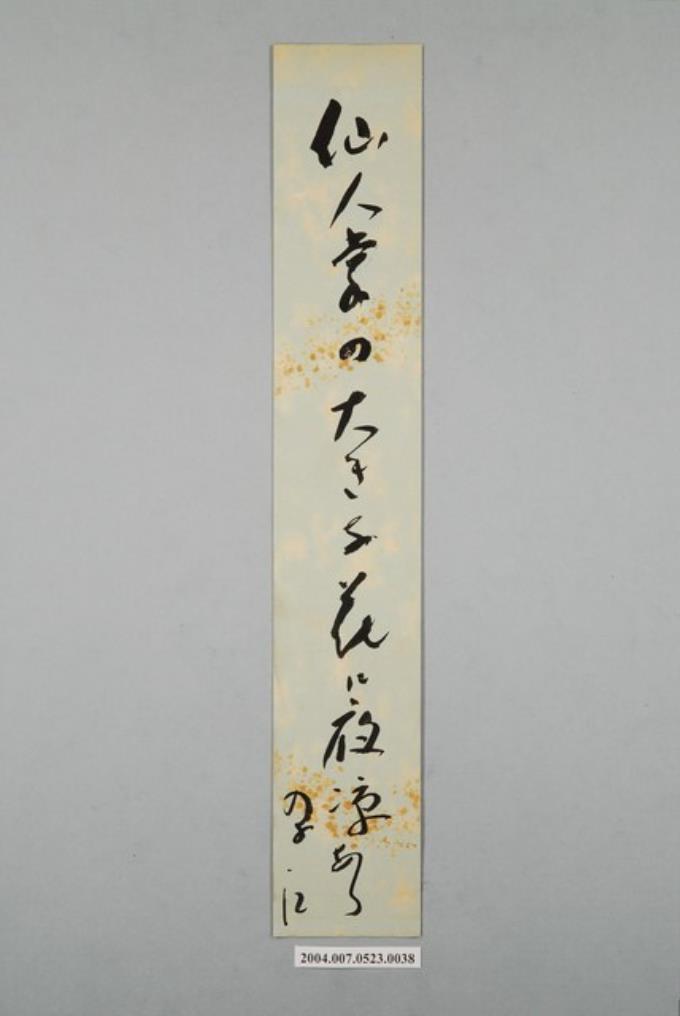 仙人掌の大きな花に夜涼あり
江
2004.007.0523.0038